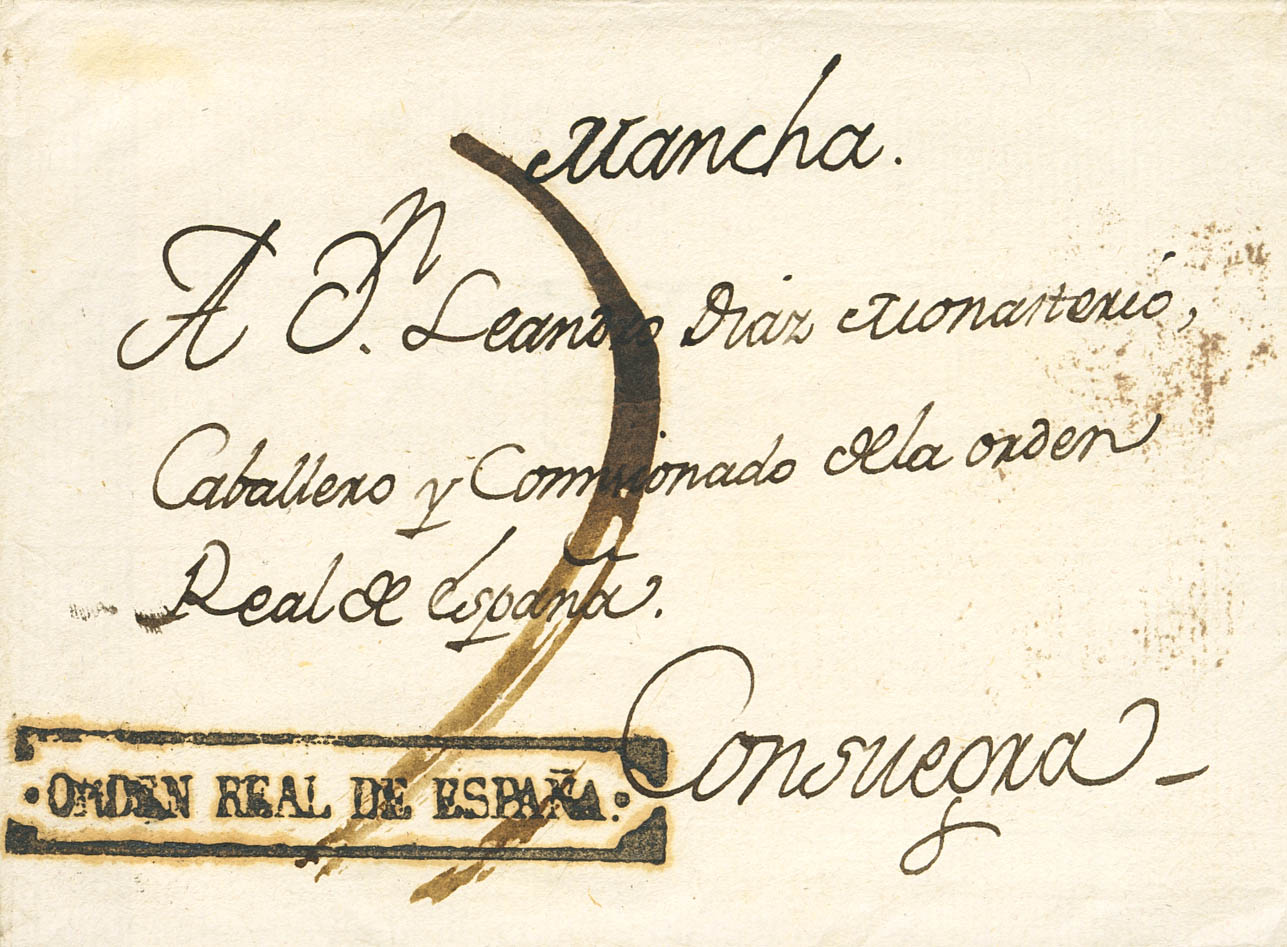 Mancha.
A D.n Leandro Diaz Monasterio,
Caballero y Commicionado dela orden
Real de España.
Consuegra
·ORDEN REAL DE ESPAÑA.·